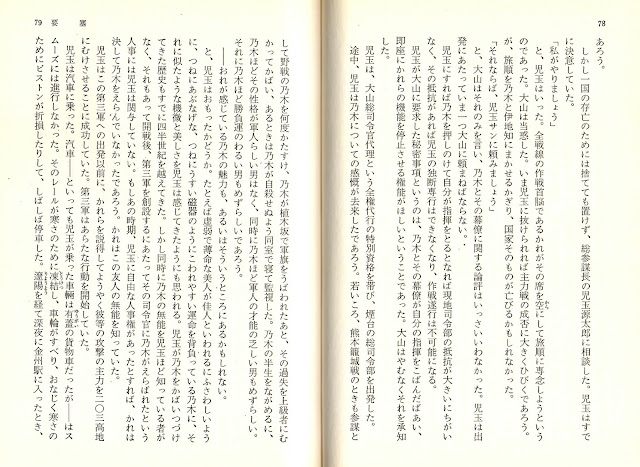 78
あろう。
しかし一国の存亡のためには捨てても置けず、総参謀長の児玉源太郎に相談した。児玉はすで
に決意していた。
「私がやりましょう」
と、児玉はいった。全戦線の作戦首脳であるかれがその席を空にして旅順に専念しようという
のであった。大山は当惑した。いま児玉に抜けられれば主力戦の成否に大きくひびくであろう。
が、旅順を乃木と伊地知にまかせるかぎり、国家そのものが亡びるかもしれなかった。
「それならば、児玉サンに頼みましょう」
と、大山はそれのみを言い、乃木とその幕僚に関する論評はいっさいいわなかった。児玉は出
発にあたっていま一つ大山に頼まねばならない。
児玉にすれば乃木を押しのけて自分が指揮をとるとなれば現地司令部の抵抗が大きいにちがい
なく、その抵抗があれば児玉の独断専行はできなくなり、作戦遂行は不可能になる。
児玉が大山に要求した秘密事項というのは、乃木とその幕僚が自分の指揮をこばんだばあい、
即座にかれらの機能を停止させる権能がほしいということであった。大山はやむなくそれを承知
した。
児玉は、大山総司令官代理という全権代行の特別資格を帯び、煙台の総司令部を出発した。
途中、児玉は乃木についての感慨が去来したであろう。若いころ、熊本籠城戦のときも参謀と
79 要塞
して野戦の乃木を何度かたすけ、乃木が植木坂で軍旗をうばわれたあと、その過失を上級者にむ
かってかばい、あるときは乃木が自殺せぬよう同室で寝て監視した。乃木の半生をながめるに、
乃木ほどその性格が軍人らしい男はなく、同時に乃木ほど軍人の才能の乏しい男もめずらしい。
それに乃木ほど勝負運のわるい男もめずらしいであろう。
――おれが感じている乃木の魅力も、あるいはそういうところにあるかもしれない。
と、児玉はおもったかどうか。たとえば虚弱で薄命な美人が佳人といわれるにふさわしいよう
に、つねにあぶなげな、つねにうすい磁器のようにこわれやすい運命を背負っている乃木に、そ
れに似たような機微と美しさを児玉は感じてきたようにも思われる。児玉が乃木をかばいつづけ
てきた歴史もすでに四半世紀を越えてきた。しかし同時に乃木の無能を児玉ほど知っている者が
なく、それもあって開戦後、第三軍を創設するにあたってその司令官に乃木がえらばれたという
人事には児玉は関与していない。もしあの時期、児玉に自由な人事権があったとすれば、かれは
決して乃木をえらんでいなかったであろう。かれはこの友人の無能を知っていた。
児玉はこの第三軍への出発以前に、かれらを説得してようやく彼等の攻撃の主力を二〇三高地
にむけさせることに成功していた。第三軍はあらたな行動を開始していた。
児玉は汽車に乗った。汽車――といっても児玉が乗った車輛は有蓋の貨物車だったが――はス
ムーズには進行しなかった。そのレールが寒さのために凍結し、車輪がすべり、おなじく寒さの
ためにピストンが折損したりして、しばしば停車した。遼陽を経て深夜に金州駅に入ったとき、